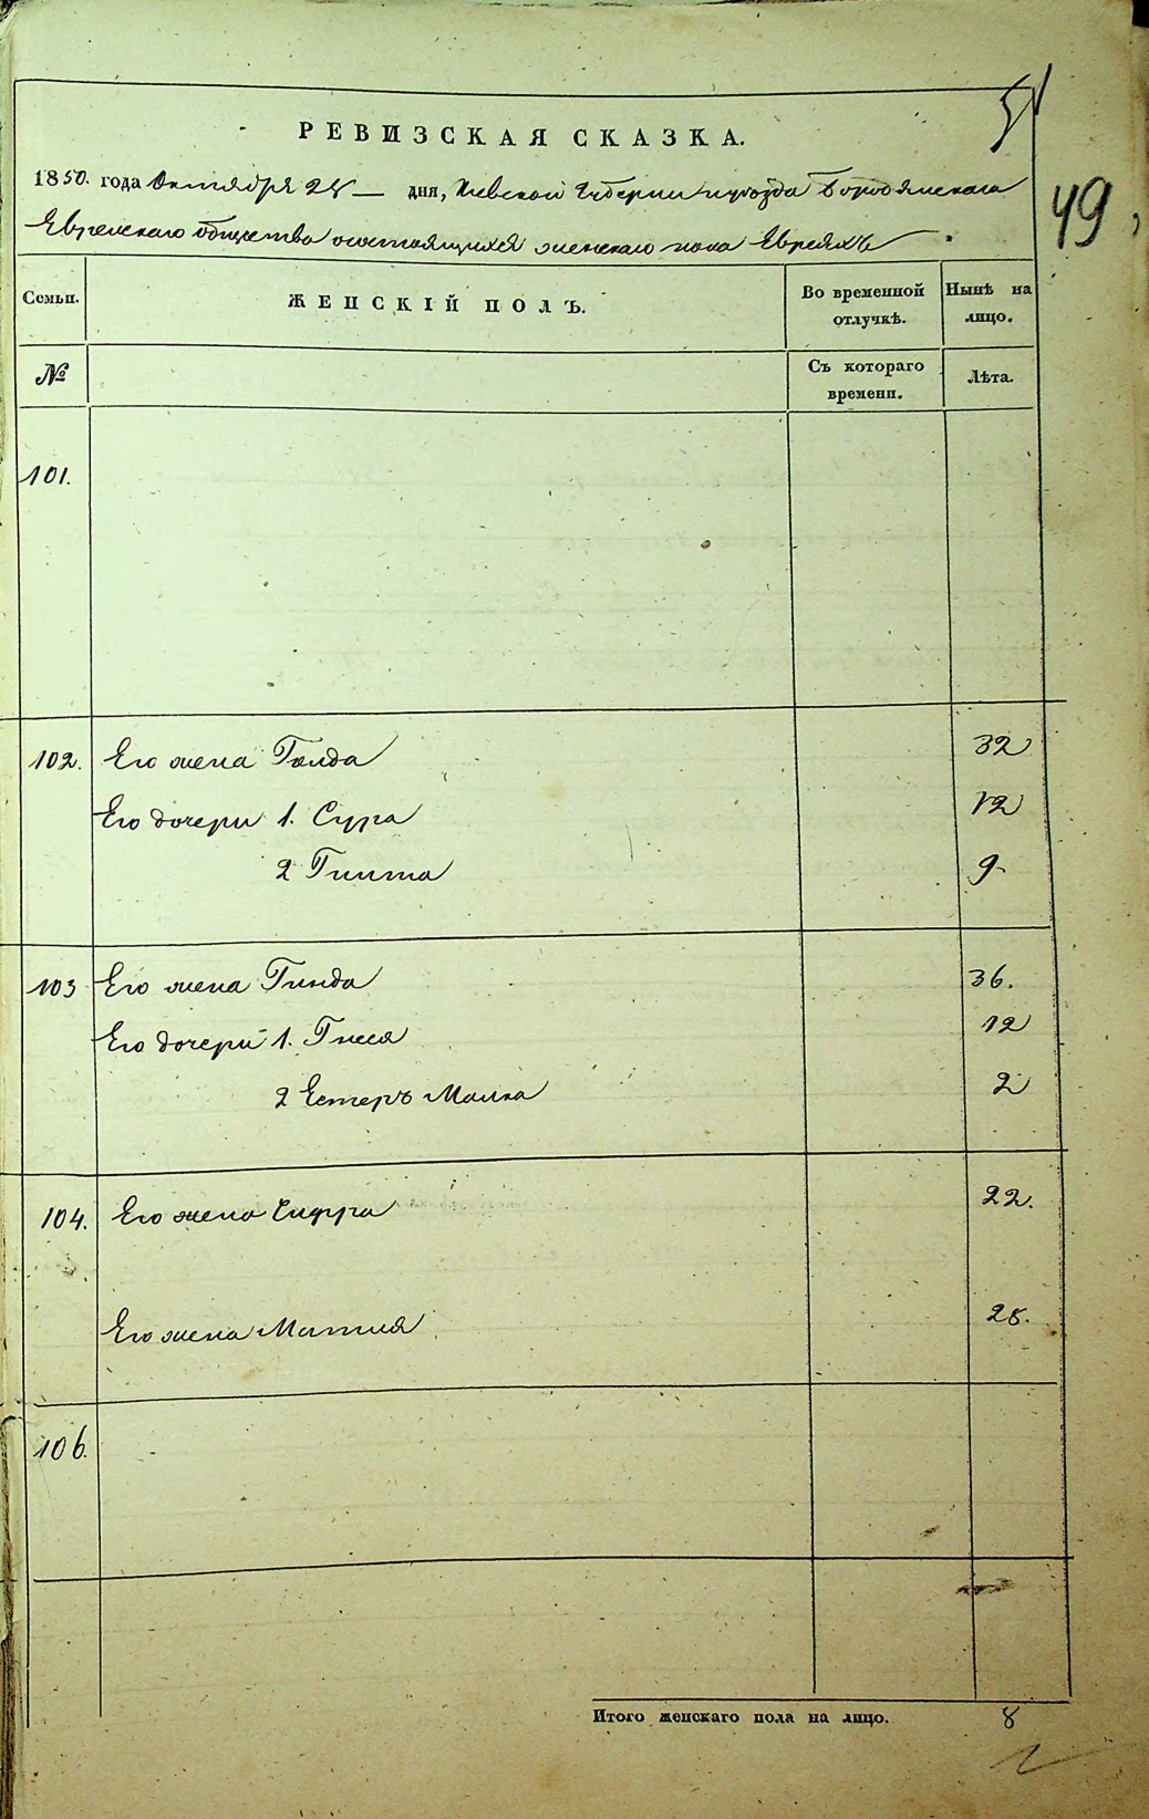 51
49
РЕВИЗСКАЯ СКАЗКА.
1850. года Октября 25 дня, Киевской Губернии и уезда Бородянскаго
Еврейскаго общества о состоящихся женскаго пола Евреяхъ.
Семьи. ЖЕНСКІЙ ПОЛЪ. Во временной отлучкѣ. Нынѣ на лицо.
№ Съ котораго времени. Лѣта.
101.
102. Его жена Голда 32
Его дочери 1. Сура 12
2 Гитта 9
103 Его жена Гинда 36.
Его дочери 1. Гнеся 12
2 Естеръ Малка 2
104. Его жена Сифра 22.
Его жена Матля 25.
106.
Итого женскаго пола на лицо. 8